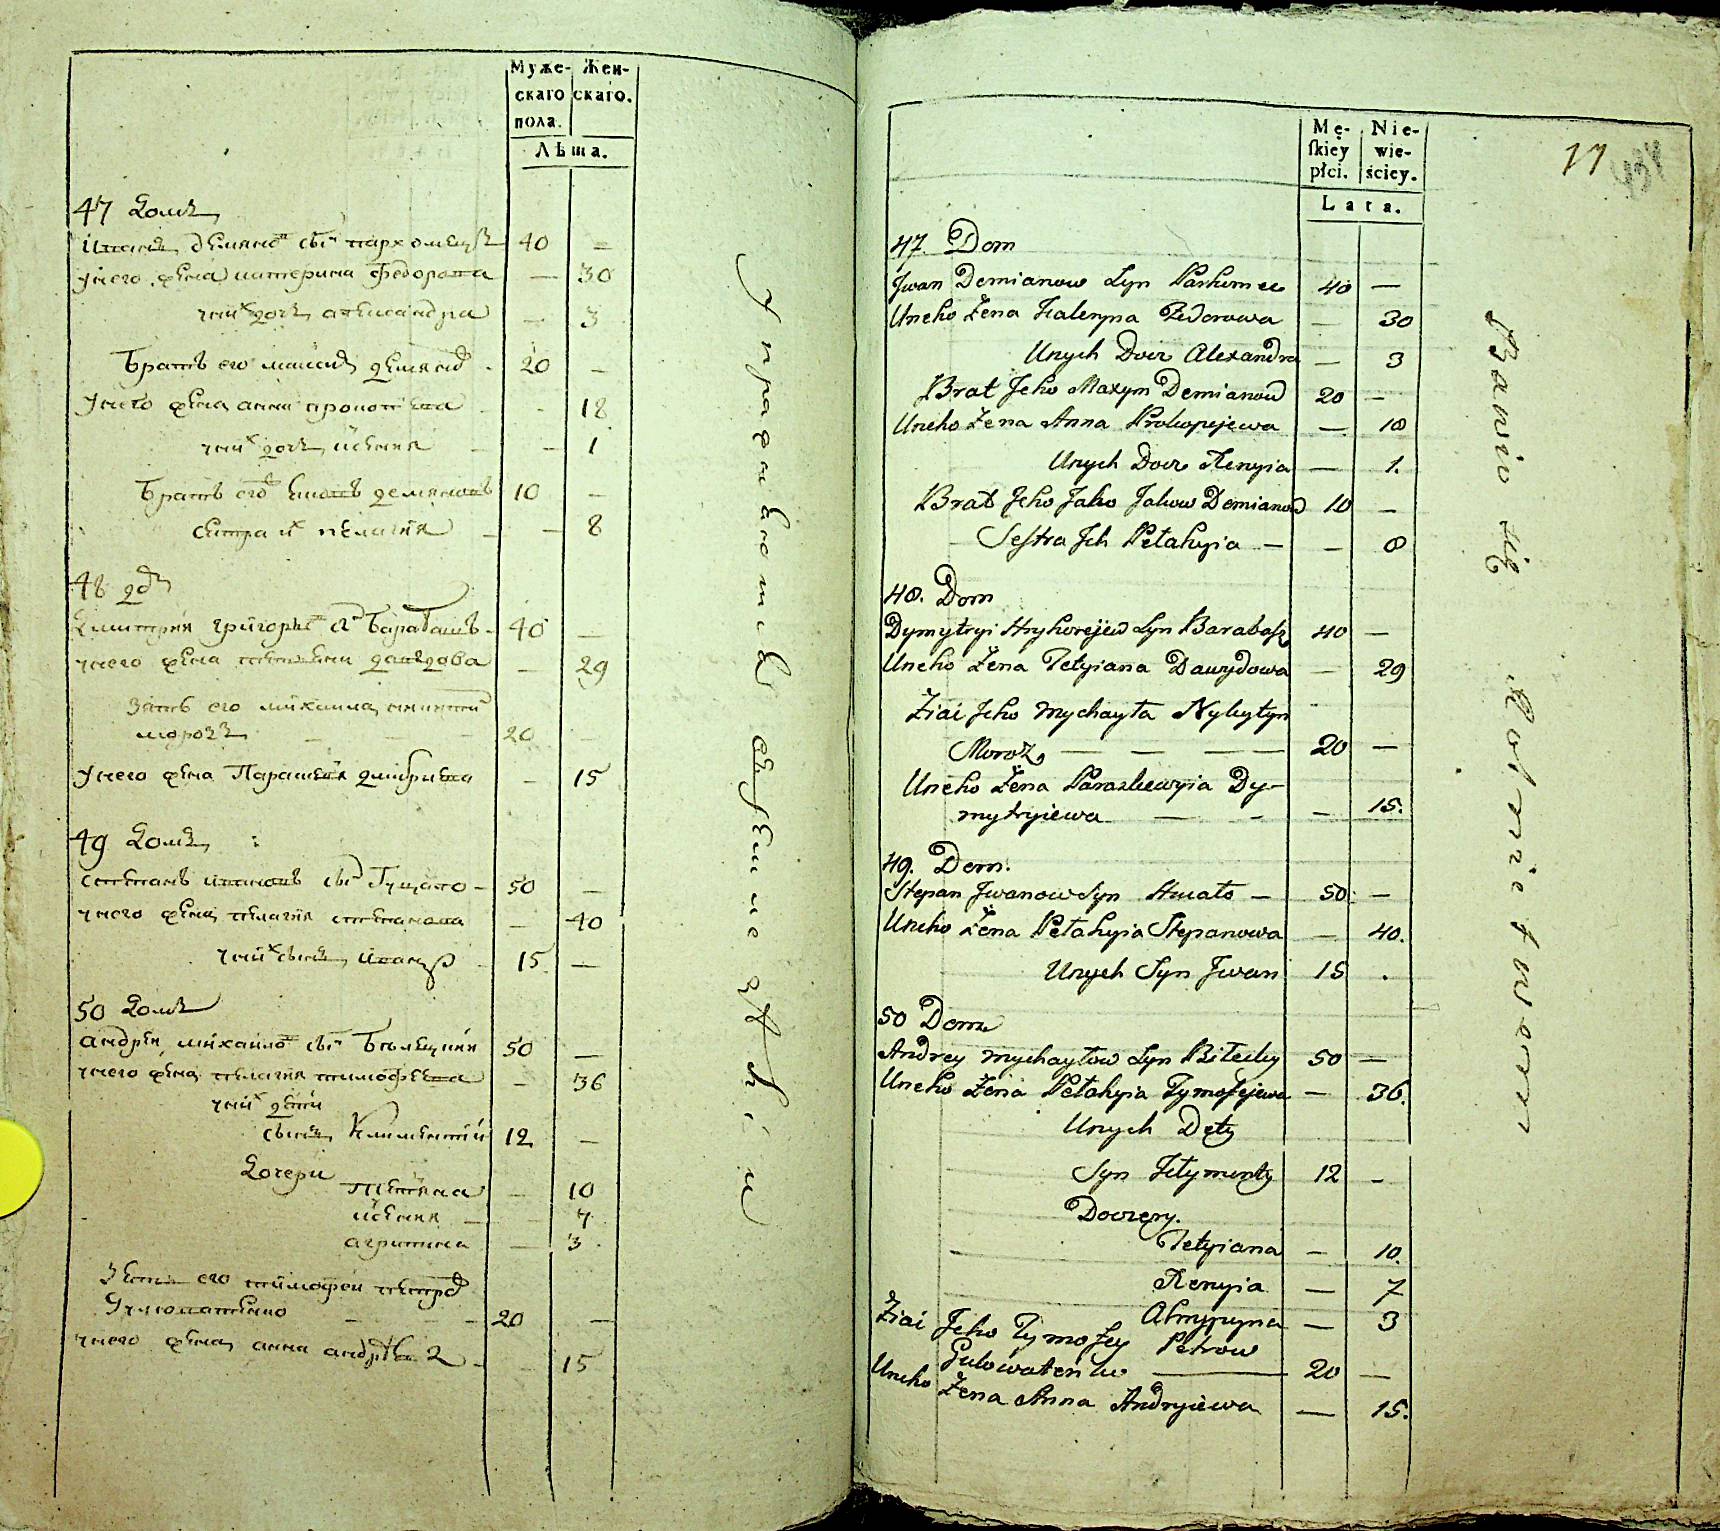 Муже- Жен-
скаго скаго.
пола.
Лѣта.
47 Домъ
Иванъ Демяновъ сынъ Пархомецъ 40 —
У него жена Катерина Федорова — 30
У них дочь Александра — 3
Братъ его Максимъ Демяновъ 20 —
У него жена Анна Прокопѣева — 18
У них дочь Ксения — 1
Братъ его Яковъ Демяновъ 10 —
Сестра их Пелагия — 8
48 до
Дмитрий Григорьевъ сынъ Барабашъ 40 —
У него жена Татияна Давидова — 29
Зять его Михаила Никитинъ
Морозъ 20 —
У него жена Параскевия Дмитриева — 15
49 Домъ
Степанъ Ивановъ сынъ Гущало 50 —
У него жена Пелагия Степанова — 40
У них сынъ Иванъ 15 —
50 Домъ
Андрей Михайловъ сынъ Билецкий 50 —
У него жена Пелагия Тимофеева — 36
У них дети
сынъ Климентий 12 —
Дочери
Тетяна — 10
Ксения — 7
Агрипина — 3
Зять его Тимофей Петровъ
20 —
У него жена Анна Андреева — 15
Упражняются въ земледѣлии
17
Mę- Nie-
ſkiey wie-
płci. ściey.
Lata.
47. Dom
Jwan Demianow Syn Parhomec 40 —
Uneho Żena Kateryna Fedorowa — 30
Unych Docz Alexandra — 3
Brat Jeho Maxym Demianow 20 —
Uneho Żena Anna Prokopijewa — 18
Unych Docz Xenyia — 1.
Brat Jeho Jako Jakow Demianow 10 —
Seſtra Jch Pełahyia — — 8
48. Dom
Dymytryi Hryhorejew Syn Barabaſz 40 —
Uneho Żena Tetyiana Dawydowa — 29
Ziat Jeho Mychayła Nykytyn
Moroz, — — — 20 —
Uneho Żena Paraskewyia Dy-
mytryiewa — — — 15.
49. Dom.
Stepan Jwanow Syn Huzało — 50. —
Uneho Żena Pełahyia Stepanowa — 40.
Unych Syn Jwan 15 .
50 Dom
Andrey Mychayłow Syn Biłecky 50 —
Uneho Żena Pełahyia Tymofejewa — 36.
Unych Dety
Syn Kłymenty 12 —
Doczery.
Tetyiana — 10.
Xenyia — 7
Ahrypyna — 3
Ziat Jeho Tymofey Petrow
Hułowateńko 20 —
Uneho Żena Anna Andryiewa — 15.
Bawio się Rolnictwem